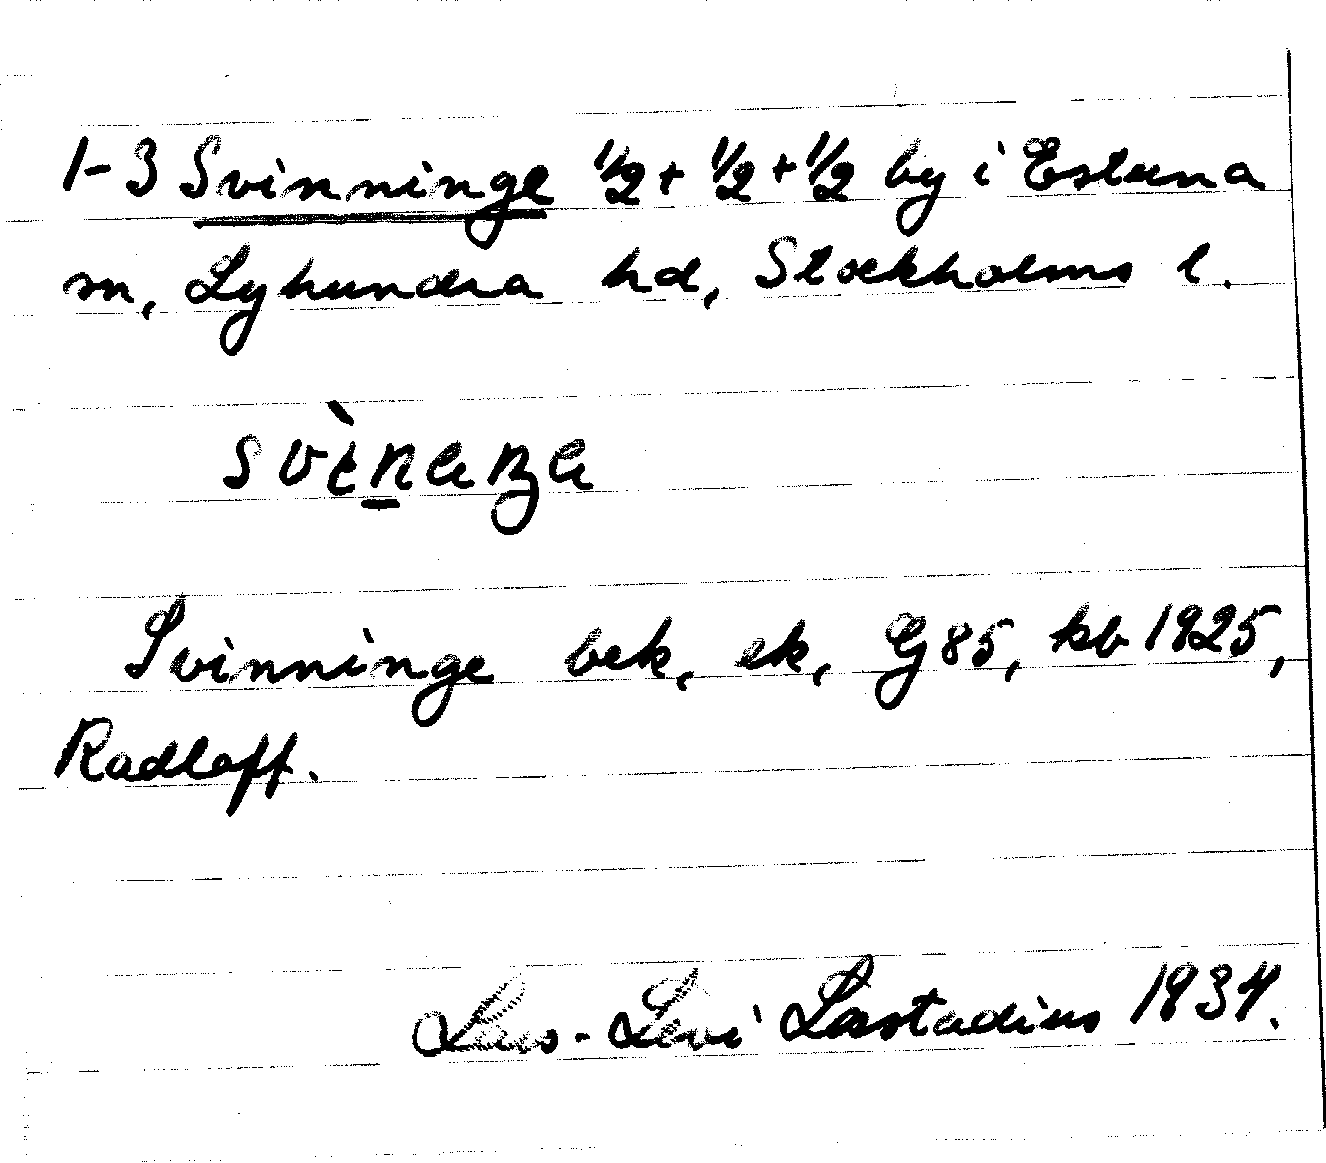 1-3 Svinninge 1/2 + 1/2 + 1/2 by i Estuna
sn, Lyhundra hd, Stockholms l.
Svinninge bek, ek, G 85, kb 1925,
Radloff.
Lars-Levi Læstadius 1934.